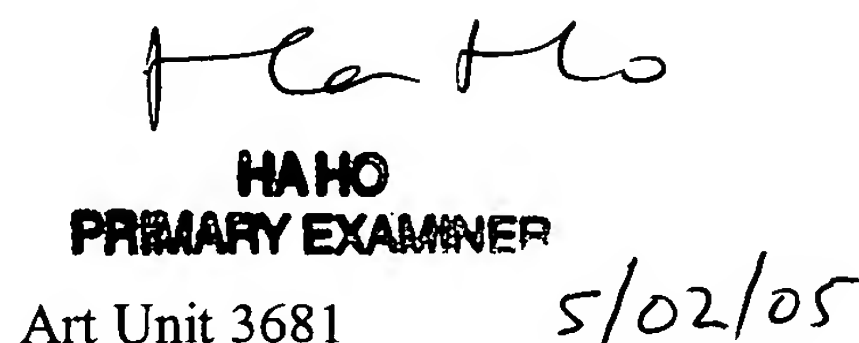 Ha Ho
HA HO
PRIMARY EXAMINER
Art Unit 3681 5/02/05